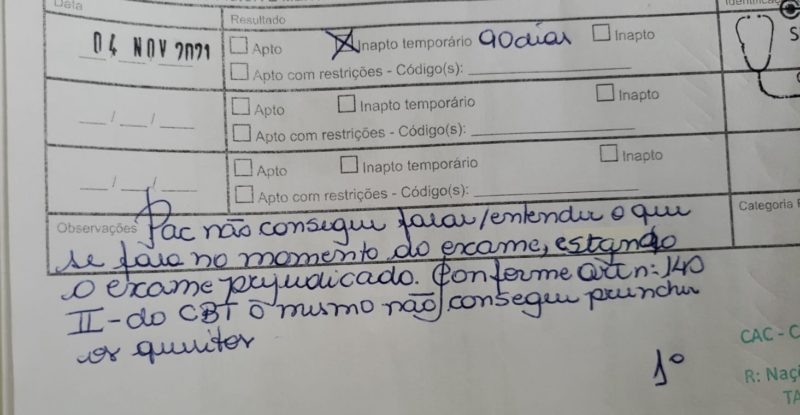 Data
Resultado
04 NOV 2021
Apto
Inapto temporário 90 dias
Inapto
Apto com restrições - Código(s):
__/__/__
Apto
Inapto temporário
Inapto
Apto com restrições - Código(s):
__/__/__
Apto
Inapto temporário
Inapto
Apto com restrições - Código(s):
Categoria
Observações Pac não consegui falar/entender o que
se fala no momento do exame, estando
o exame prejudicado. Conforme art n: 140
II - do CBT o mesmo não consegui preencher
os quesitos
1º
CAC - C
R: Naç
TA